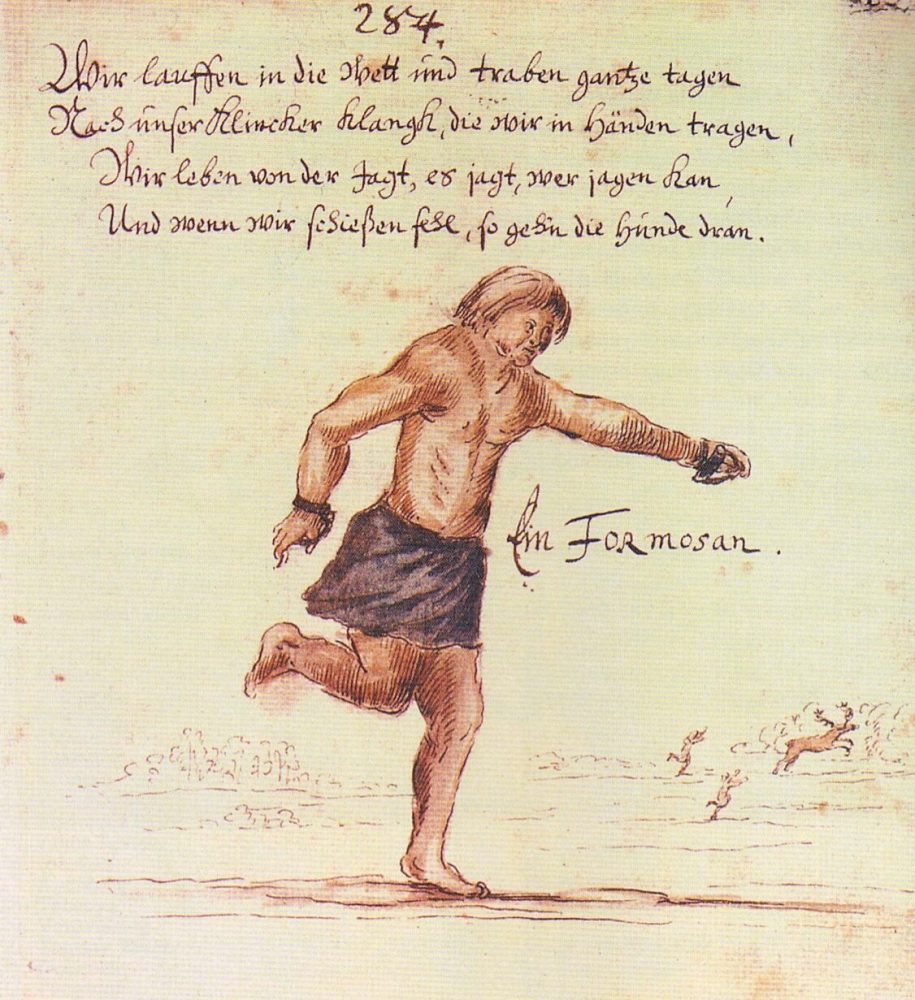 284.
Wir lauffen in die Wett und traben gantze tagen
Nach unser Klincker Klangk, die wir in Händen tragen,
Wir leben von der Jagt, es jagt, wer jagen kan,
Und wenn wir schießen fehl, so gehn die Hunde dran.
Ein Formosan.